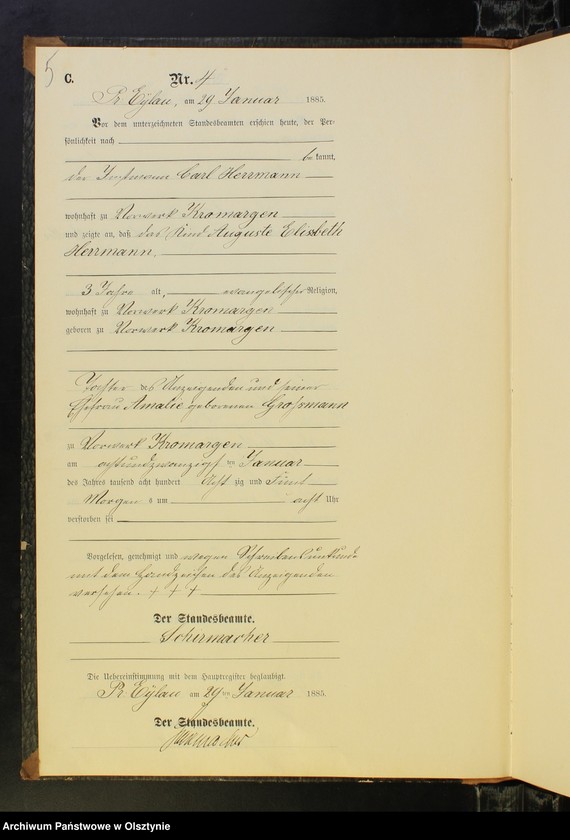 5
C. Nr. 4
Pr. Eylau, am 29 Januar 1885.
Vor dem unterzeichneten Standesbeamten erschien heute, der Per-
sönlichkeit nach
bekannt,
der Instmann Carl Herrmann
wohnhaft zu Vorwerk Kromargen
und zeigte an, daß das Kind Auguste Elisbeth
Herrmann,
3 Jahre alt, evangelischer Religion,
wohnhaft zu Vorwerk Kromargen
geboren zu Vorwerk Kromargen
Tochter des Anzeigenden und seiner
Ehefrau Amalie geborenen Großmann
zu Vorwerk Kromargen
am achtundzwanzigsten Januar
des Jahres tausend acht hundert Achtzig und Fünf
Morgens um acht Uhr
verstorben sei
Vorgelesen, genehmigt und wegen Schreibensunkunde
mit dem Handzeichen des Anzeigenden
versehen. + + +
Der Standesbeamte.
Schirmacher
Die Uebereinstimmung mit dem Hauptregister beglaubigt.
Pr. Eylau am 29ten Januar 1885.
Der Standesbeamte.
Schirmacher
Archiwum Państwowe w Olsztynie